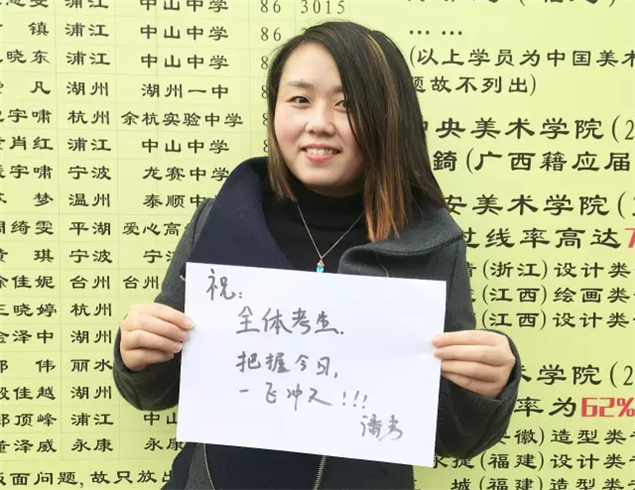 浦江 中山中学 86 3015
镇 浦江 中山中学 86
晓东 浦江 中山中学 86
凡 湖州 湖州一中 86
宇啸 杭州 余杭实验中学
肖红 浦江 中山中学
宇啸 宁波 龙赛中学
梦 温州 泰顺中
绮雯 平湖 爱心高
琪 宁波 宁波
佳妮 台州 台州
晓婷 杭州
泽中 湖州
伟 丽水
佳越 湖州
顶峰 浦江 中山
泽威 永康 永康
面问题,故只放出
… …
(以上学员为中国美术
故不列出)
央美术学院(2
錡(广西籍应届
安美术学院(2
过线率高达7
(浙江)设计类
(江西)绘画类
(江西)设计类
美术学院(2
率为62%
徽)造型类
(福建)设计类
城(福建)造型类
祝:
全体考生.
把握今日,
一飞冲天!!!